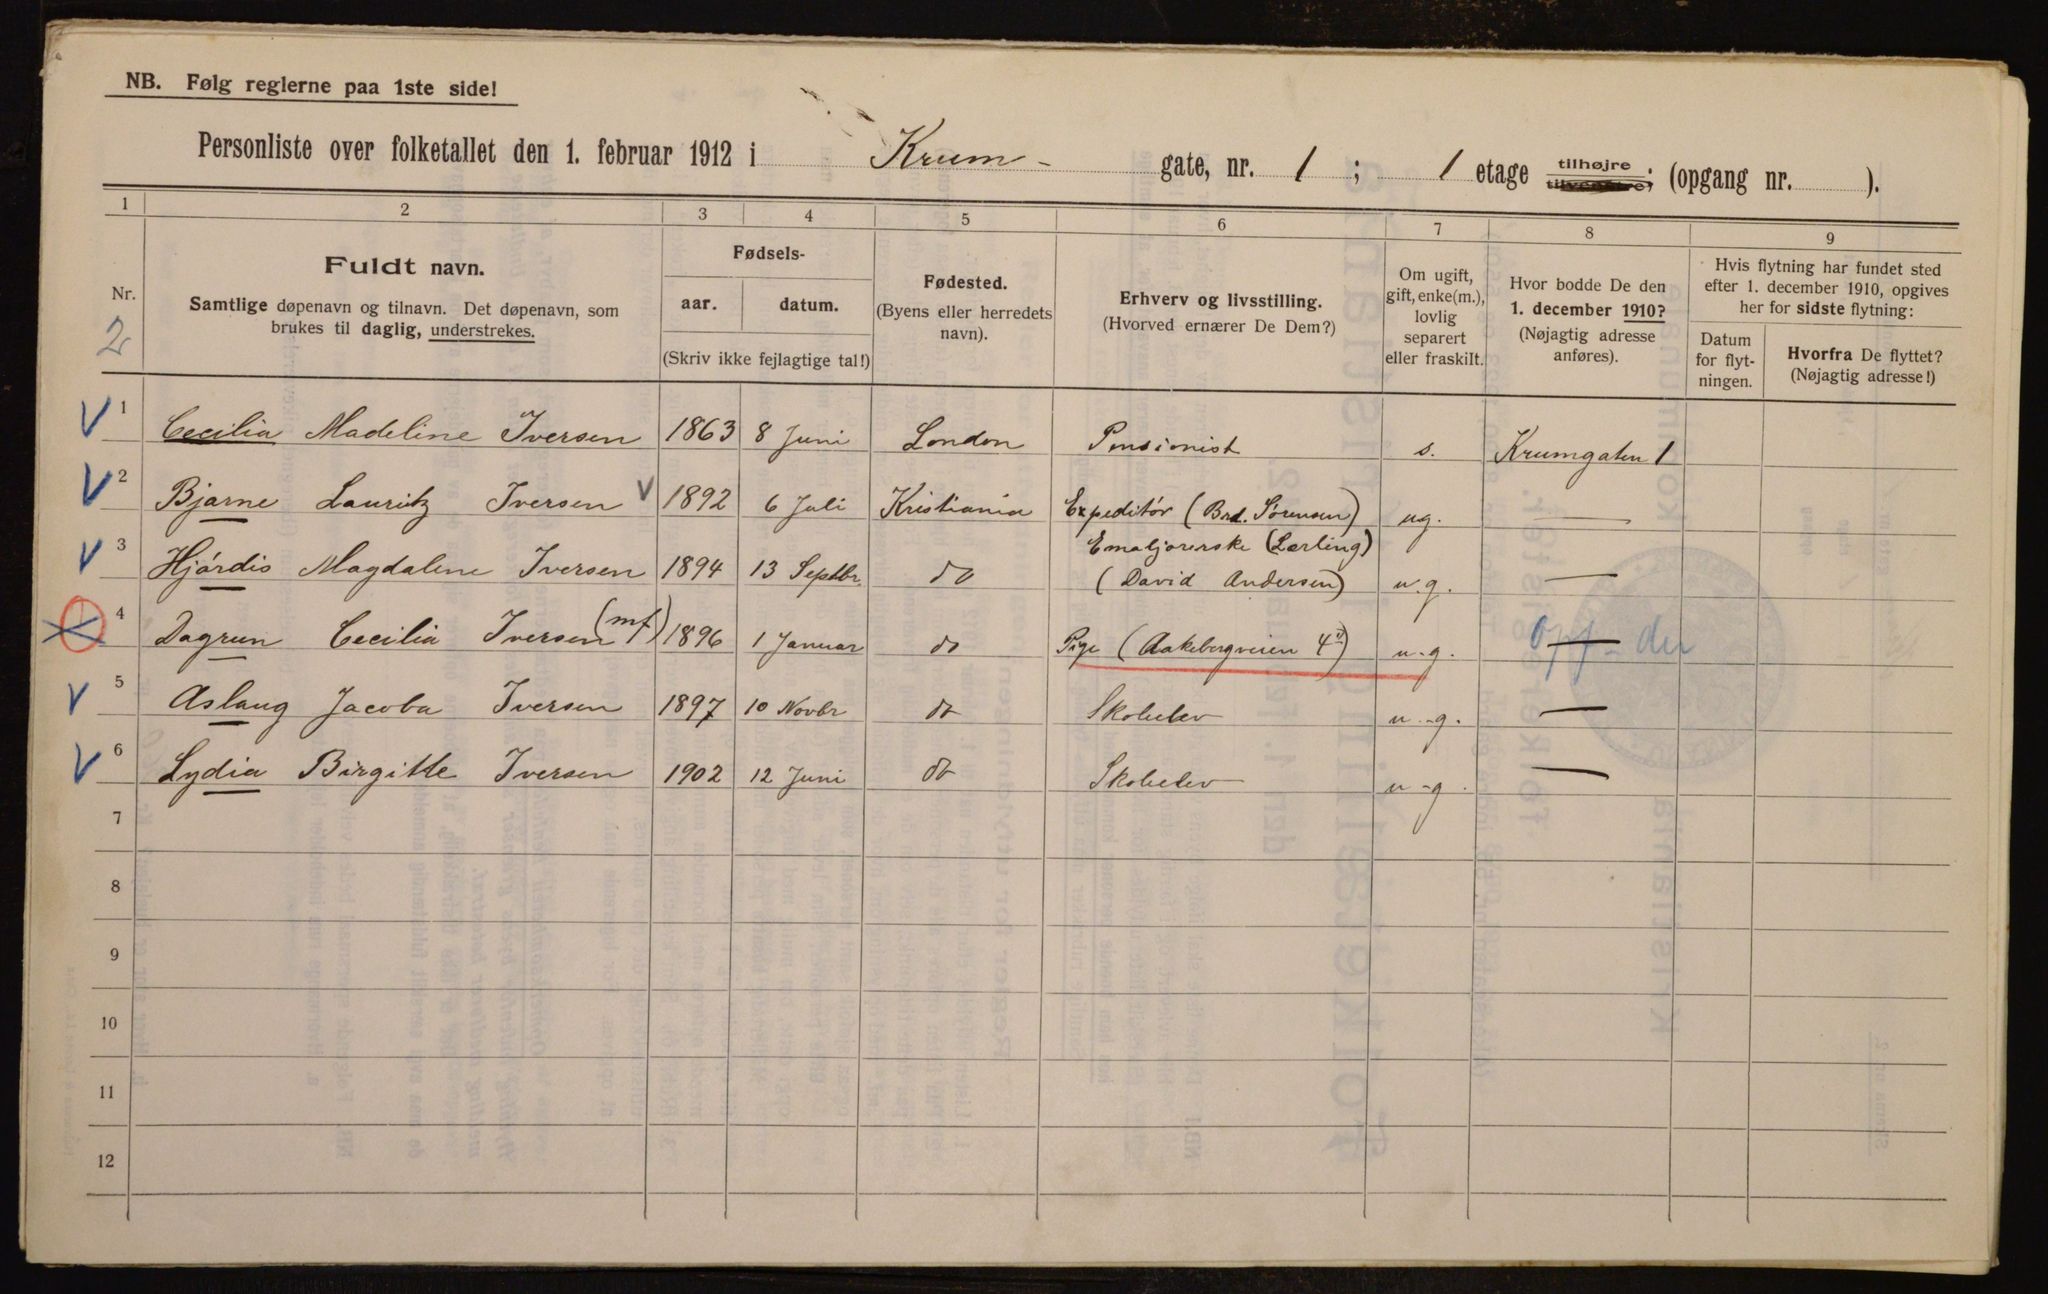 NB. Følg reglerne paa 1ste side!
Personliste over folketallet den 1. februar 1912 i Krum- gate, nr. 1 ; 1 etage tilhøjre tilvenstre, (opgang nr. ).
1 2 3 4 5 6 7 8 9
Nr. 2
Fuldt navn.
Samtlige døpenavn og tilnavn. Det døpenavn, som
brukes til daglig, understrekes.
Fødsels-
aar. datum.
(Skriv ikke fejlagtige tal!)
Fødested.
(Byens eller herredets
navn).
Erhverv og livsstilling.
(Hvorved ernærer De Dem?)
Om ugift,
gift, enke(m.),
lovlig
separert
eller fraskilt.
Hvor bodde De den
1. december 1910?
(Nøjagtig adresse
anføres).
Hvis flytning har fundet sted
efter 1. december 1910, opgives
her for sidste flytning:
Datum
for flyt-
ningen.
Hvorfra De flyttet?
(Nøjagtig adresse!)
1 Cecilia Madeline Iversen 1863 8 Juni London Pensionist s. Krumgaten 1
2 Bjarne Lauritz Iversen 1892 6 Juli Kristiania Expeditør (Brd. Sørensen) ug. —
Emaljørerske (Lærling)
3 Hjørdis Magdalene Iversen 1894 13 Septbr do (David Andersen) u.g. —
4 Dagrun Cecilia Iversen (mf) 1896 1 Januar do Pige (Aakebergveien 4II) u.g. —
5 Aslaug Jacoba Iversen 1897 10 Novbr do Skoleelev u.-g. —
6 Lydia Birgitte Iversen 1902 12 Juni do Skoleelev u-g. —
7
8
9
10
11
12